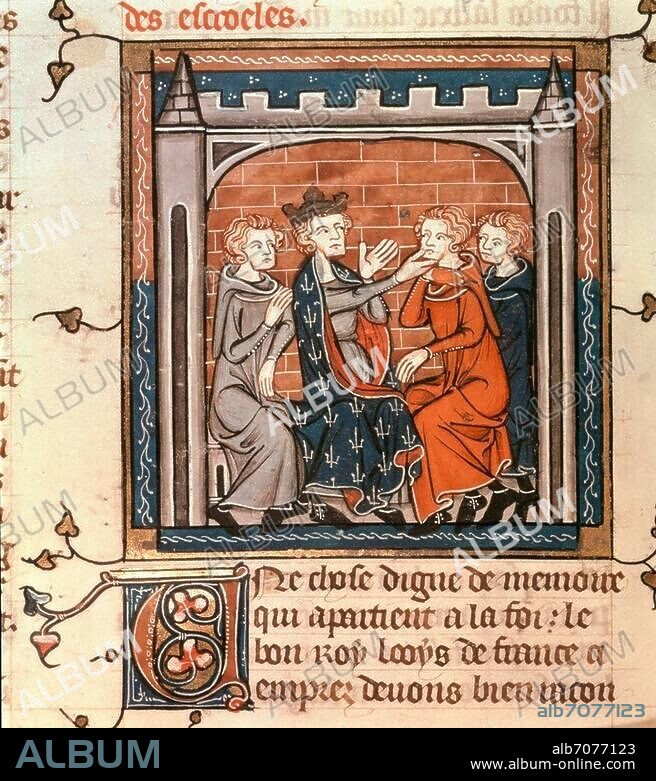 des escroeles.
Une chose digne de memoire
qui apartient a la foi : le
bon roy looys de france et
empres devons bien racon
alb7077123
ALBUM
alb7077123
www.album-online.com